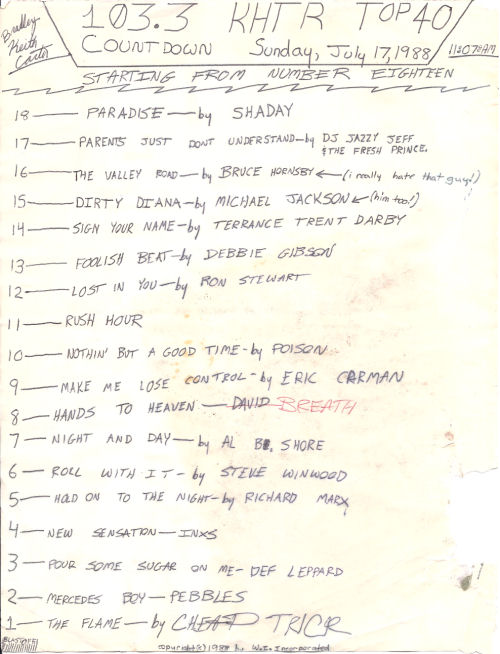 Bradley
Keith
Carter
103.3 KHTR TOP 40
COUNTDOWN Sunday, July 17, 1988 11:07AM
STARTING FROM NUMBER EIGHTEEN
18— PARADISE—by SHADAY
17— PARENTS JUST DONT UNDERSTAND—by DJ JAZZY JEFF
& THE FRESH PRINCE.
16— THE VALLEY ROAD—by BRUCE HORNSBY ← (i really hate that guy!)
15— DIRTY DIANA—by MICHAEL JACKSON ← (him too!)
14— SIGN YOUR NAME—by TERRANCE TRENT DARBY
13— FOOLISH BEAT—by DEBBIE GIBSON
12— LOST IN YOU—by RON STEWART
11— RUSH HOUR
10— NOTHIN' BUT A GOOD TIME-by POISON
9— MAKE ME LOSE CONTROL-by ERIC CARMAN
8— HANDS TO HEAVEN— DAVID BREATH
7— NIGHT AND DAY—by AL B. SHORE
6— ROLL WITH IT-by STEVE WINWOOD
5— HOLD ON TO THE NIGHT-by RICHARD MARX
4— NEW SENSATION—INXS
3— POUR SOME SUGAR ON ME-DEF LEPPARD
2— MERCEDES BOY—PEBBLES
1— THE FLAME—by CHEAP TRICK
copyright(c) 1988 by W.I. Incorporated